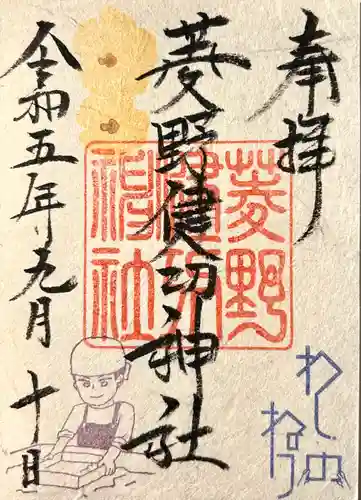 奉拝
菱野健功神社
菱野健功神社
令和五年九月十日